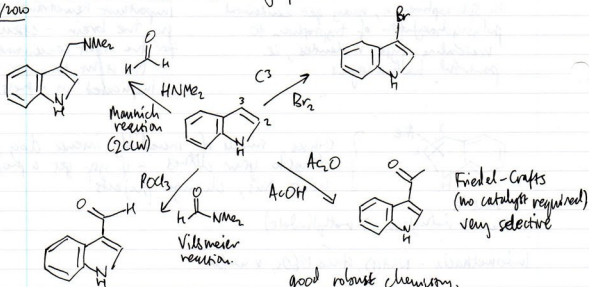 /2010
NMe2
N
H
O
H H
HNMe2
Mannich
reaction
(2CLW)
C3
Br2
Br
N
H
3
2
N
H
POCl3
O
H NMe2
Vilsmeier
reaction.
O
H
N
H
Ac2O
AcOH
O
N
H
Friedel-Crafts
(no catalyst required)
very selective
good robust chemistry.